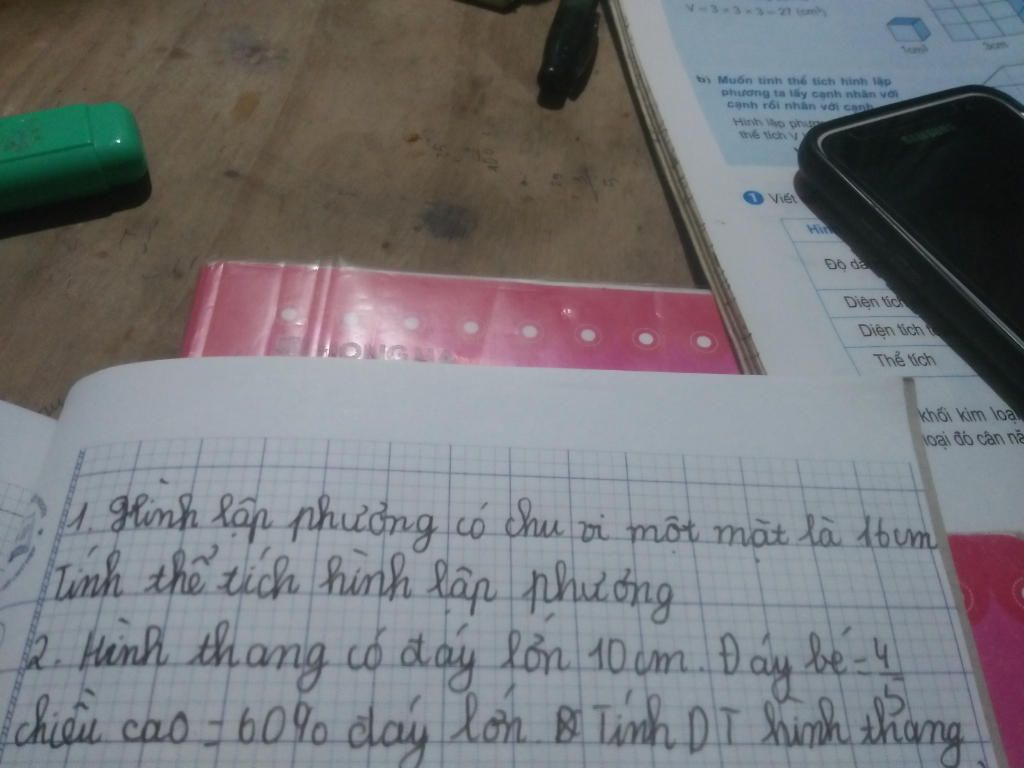 V = 3 × 3 × 3 = 27 (cm³)
1cm³
3cm
b) Muốn tính thể tích hình lập
phương ta lấy cạnh nhân với
cạnh rồi nhân với cạnh
Hình lập
thể tích V
1 Viết
Độ dà
Diện tích
Diện tích
Thể tích
khối kim loại
loại đó cân
1. Hình lập phương có chu vi một mặt là 16cm
Tính thể tích hình lập phương
2. Hình thang có đáy lớn 10cm. Đáy bé = 4/5
chiều cao = 60% đáy lớn. Tính DT hình thang